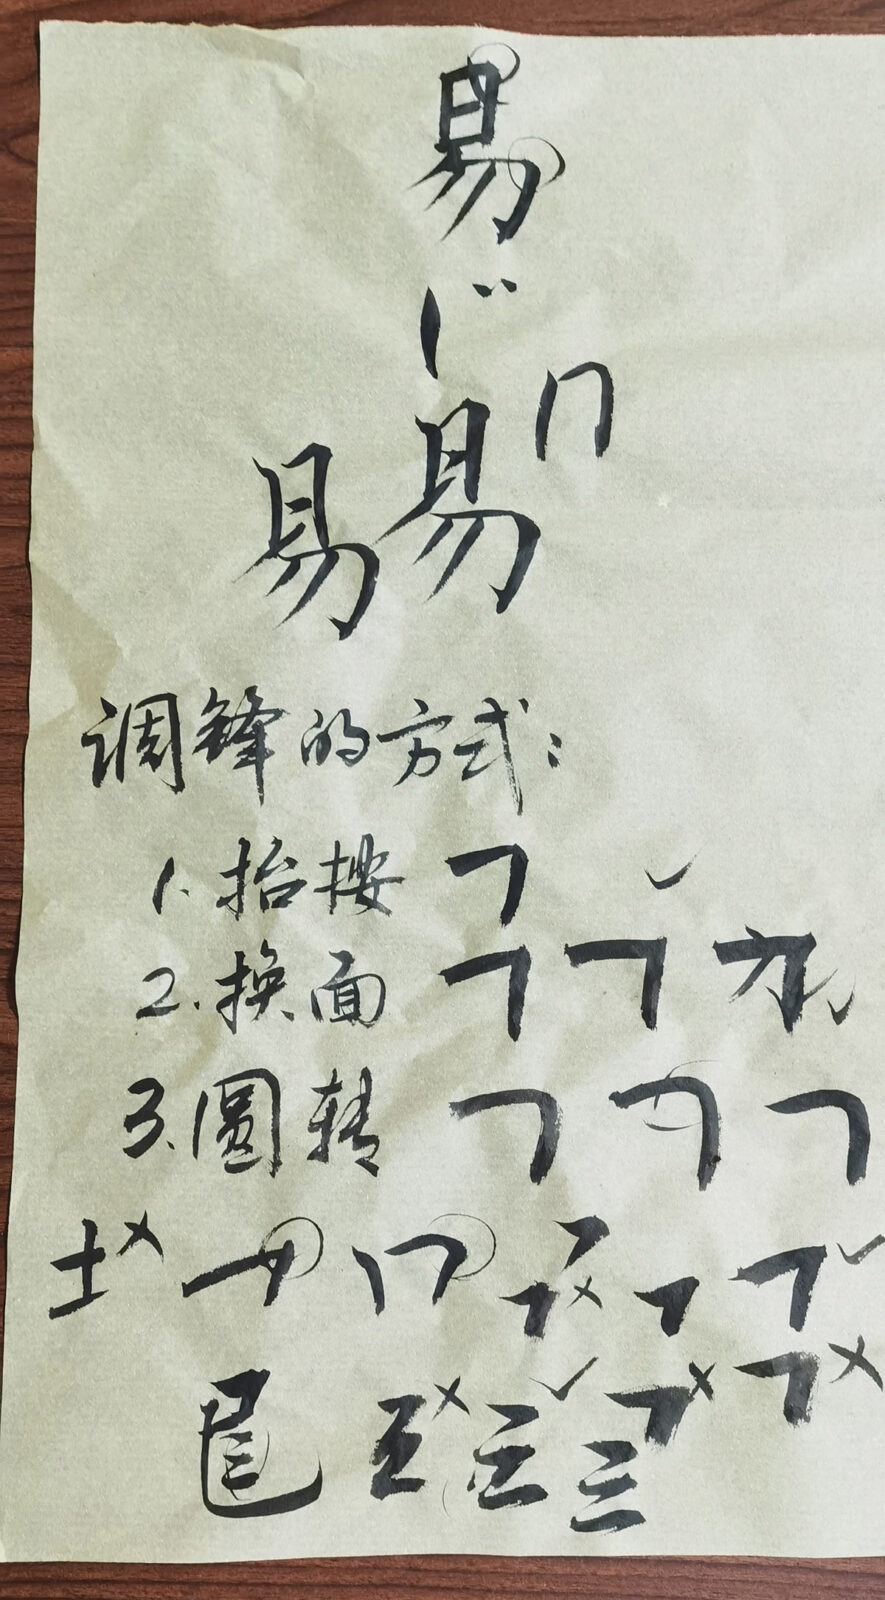 易
易
易
调锋的方式：
1.抬按
2.换面
3.圆转
土